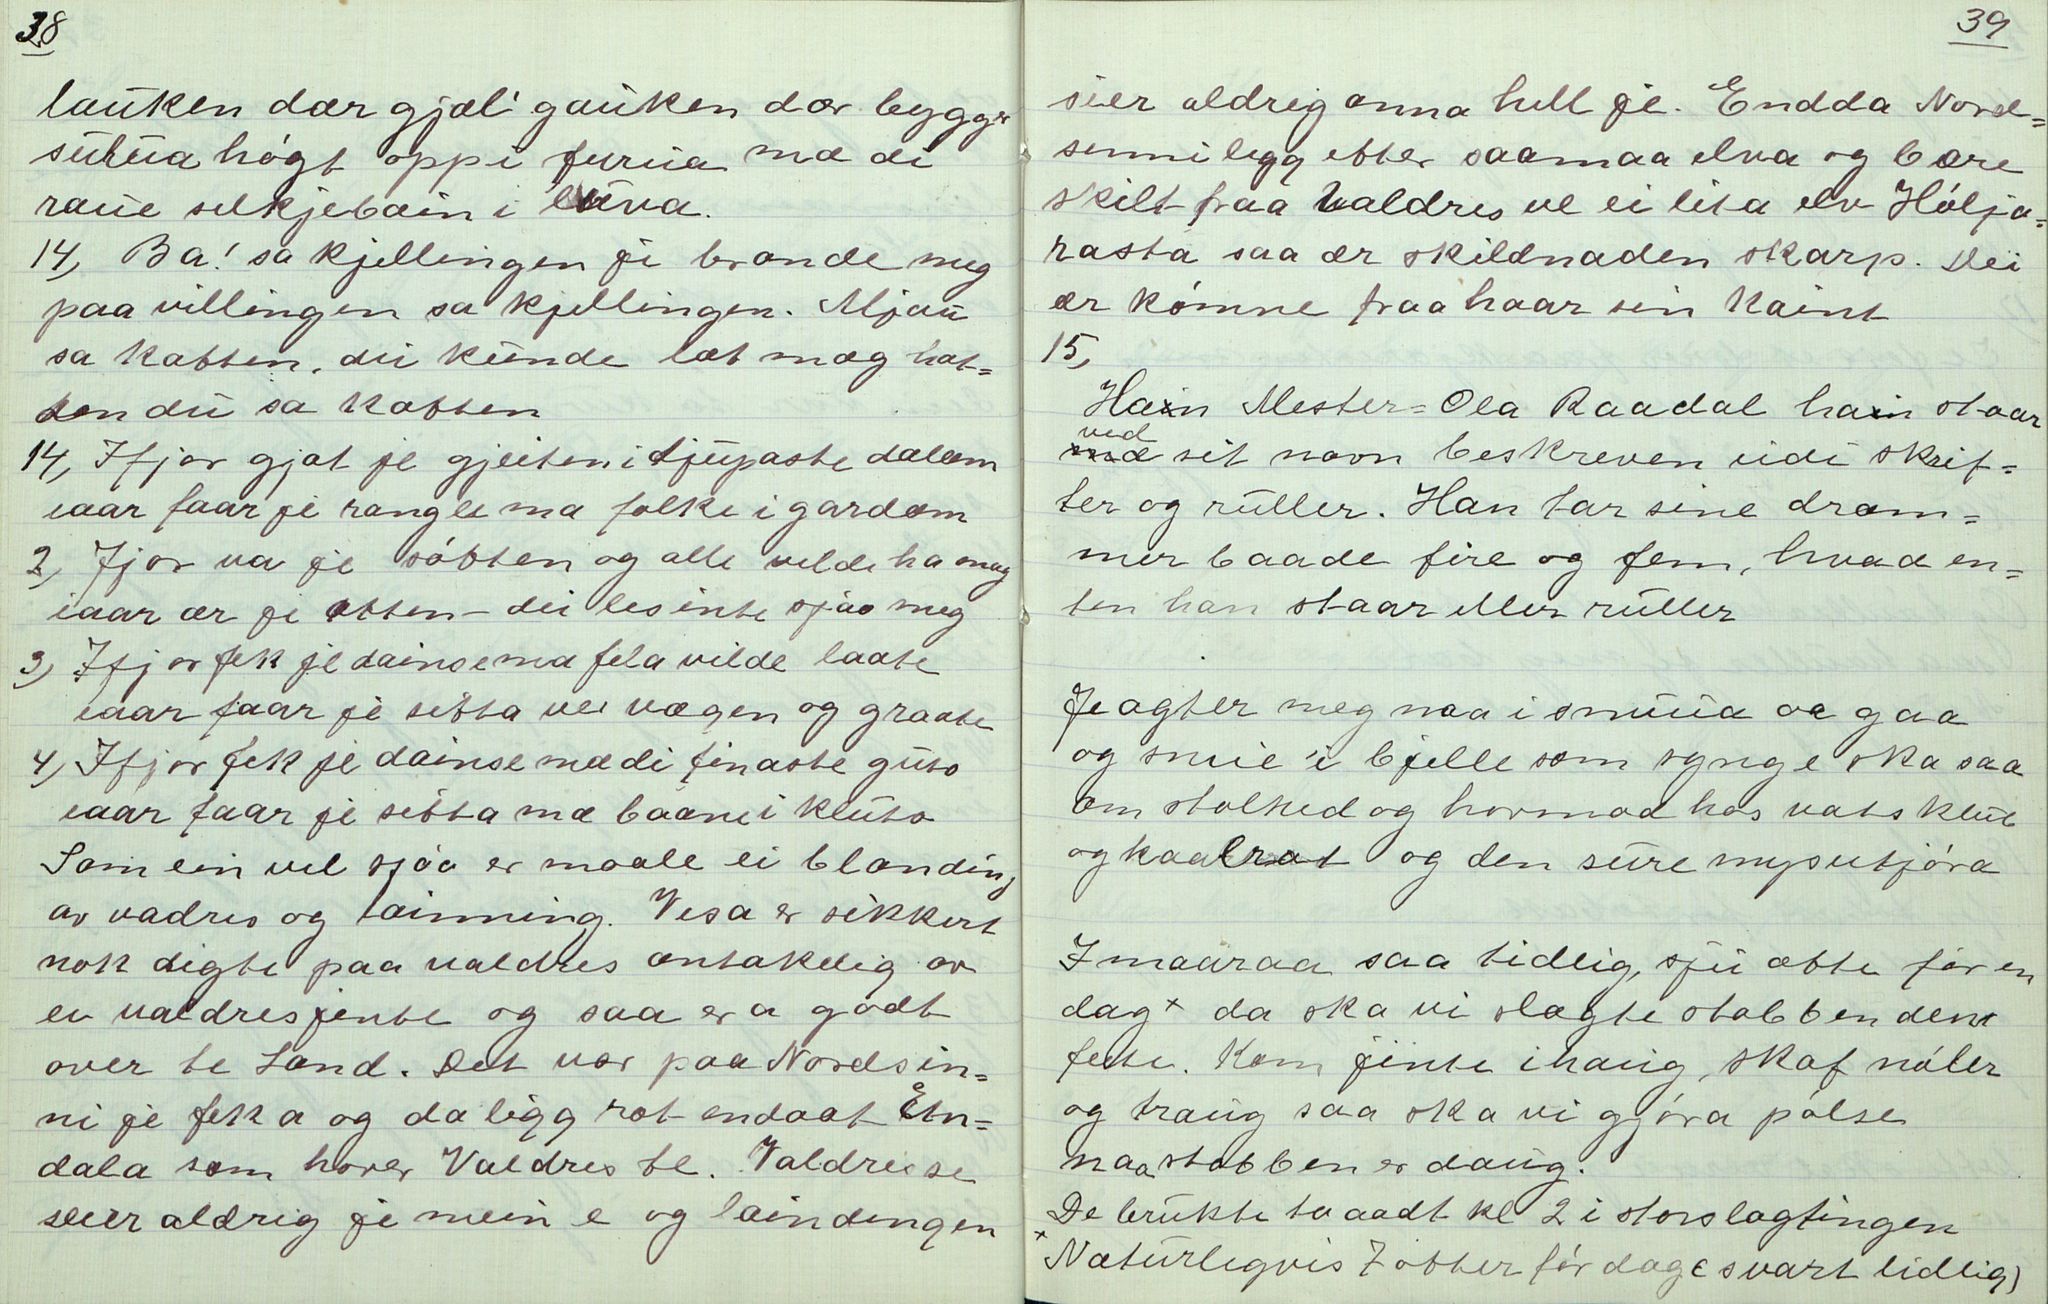 38
lauken dær gjæl gauken dær bygge
surua høgt oppi furua mæ di
raue silkjebain i luva.
14, Ba! sa kjellingen je brænde meg
paa villingen sa kjellingen. Mjau
sa katten, du kunde læt mæg hat-
ten du sa katten
14, Ifjor gjæt je gjeiten i djupaste dalom
iaar faar je rangle ma folke i gardom
2, Ifjor va je søtten og alle vilde ha mæg
iaar ær je atten – dei les inte sjaa meg
3, Ifjor fek je dainse mæ fela vilde laate
iaar faar je sitta ve vægen og graate
4, Ifjor fek je dainse mæ di finaste guto
iaar faar je sitta mæ baane i kluto
Som ein vil sjaa er maale ei blanding
av vadris og lainning. Visa er sikkert
nok digte paa valdris antakelig av
ei valdresjente og saa er a gaat
over te Land. Det var paa Nordsin-
ni je fek a og da ligg ræt endaat Etn-
dala som hører Valdres te. Valdrisse
seier aldrig je mein e og laindingen
39
seier aldrig anna hell je. Endda Nord-
sinni ligg etter saamaa elva og bære
skilt fraa Valdres ve ei lita elv Høljа-
rasta saa ær skildnaden skarp. Dei
ær kømne fraa haar sin kaint
15,
Hain Mester-Ola Raadal hain staar
ved
mæ sit navn beskreven udi skrif-
ter og ruller. Han tar sine dram-
mer baade fire og fem, hvad en-
ten han staar eller ruller
Je agter meg naa i smuua aa gaa
og smie 'i bjelle som synge ska saa
om stolthed og hovmod hos vatsklut
og kaalrot og den sure myseutjøra
I maaraa saa tidlig, sju atte før en
dag x da ska vi slagte stabben den
feite. Kom jinte i haug, skaf nøler
og traug saa ska vi gjøra pølse
naa stabben er daug.
De brukte ta aadt kl 2 i storslagtingen
x Naturligvis 7 atter før dag (svart tidlig)